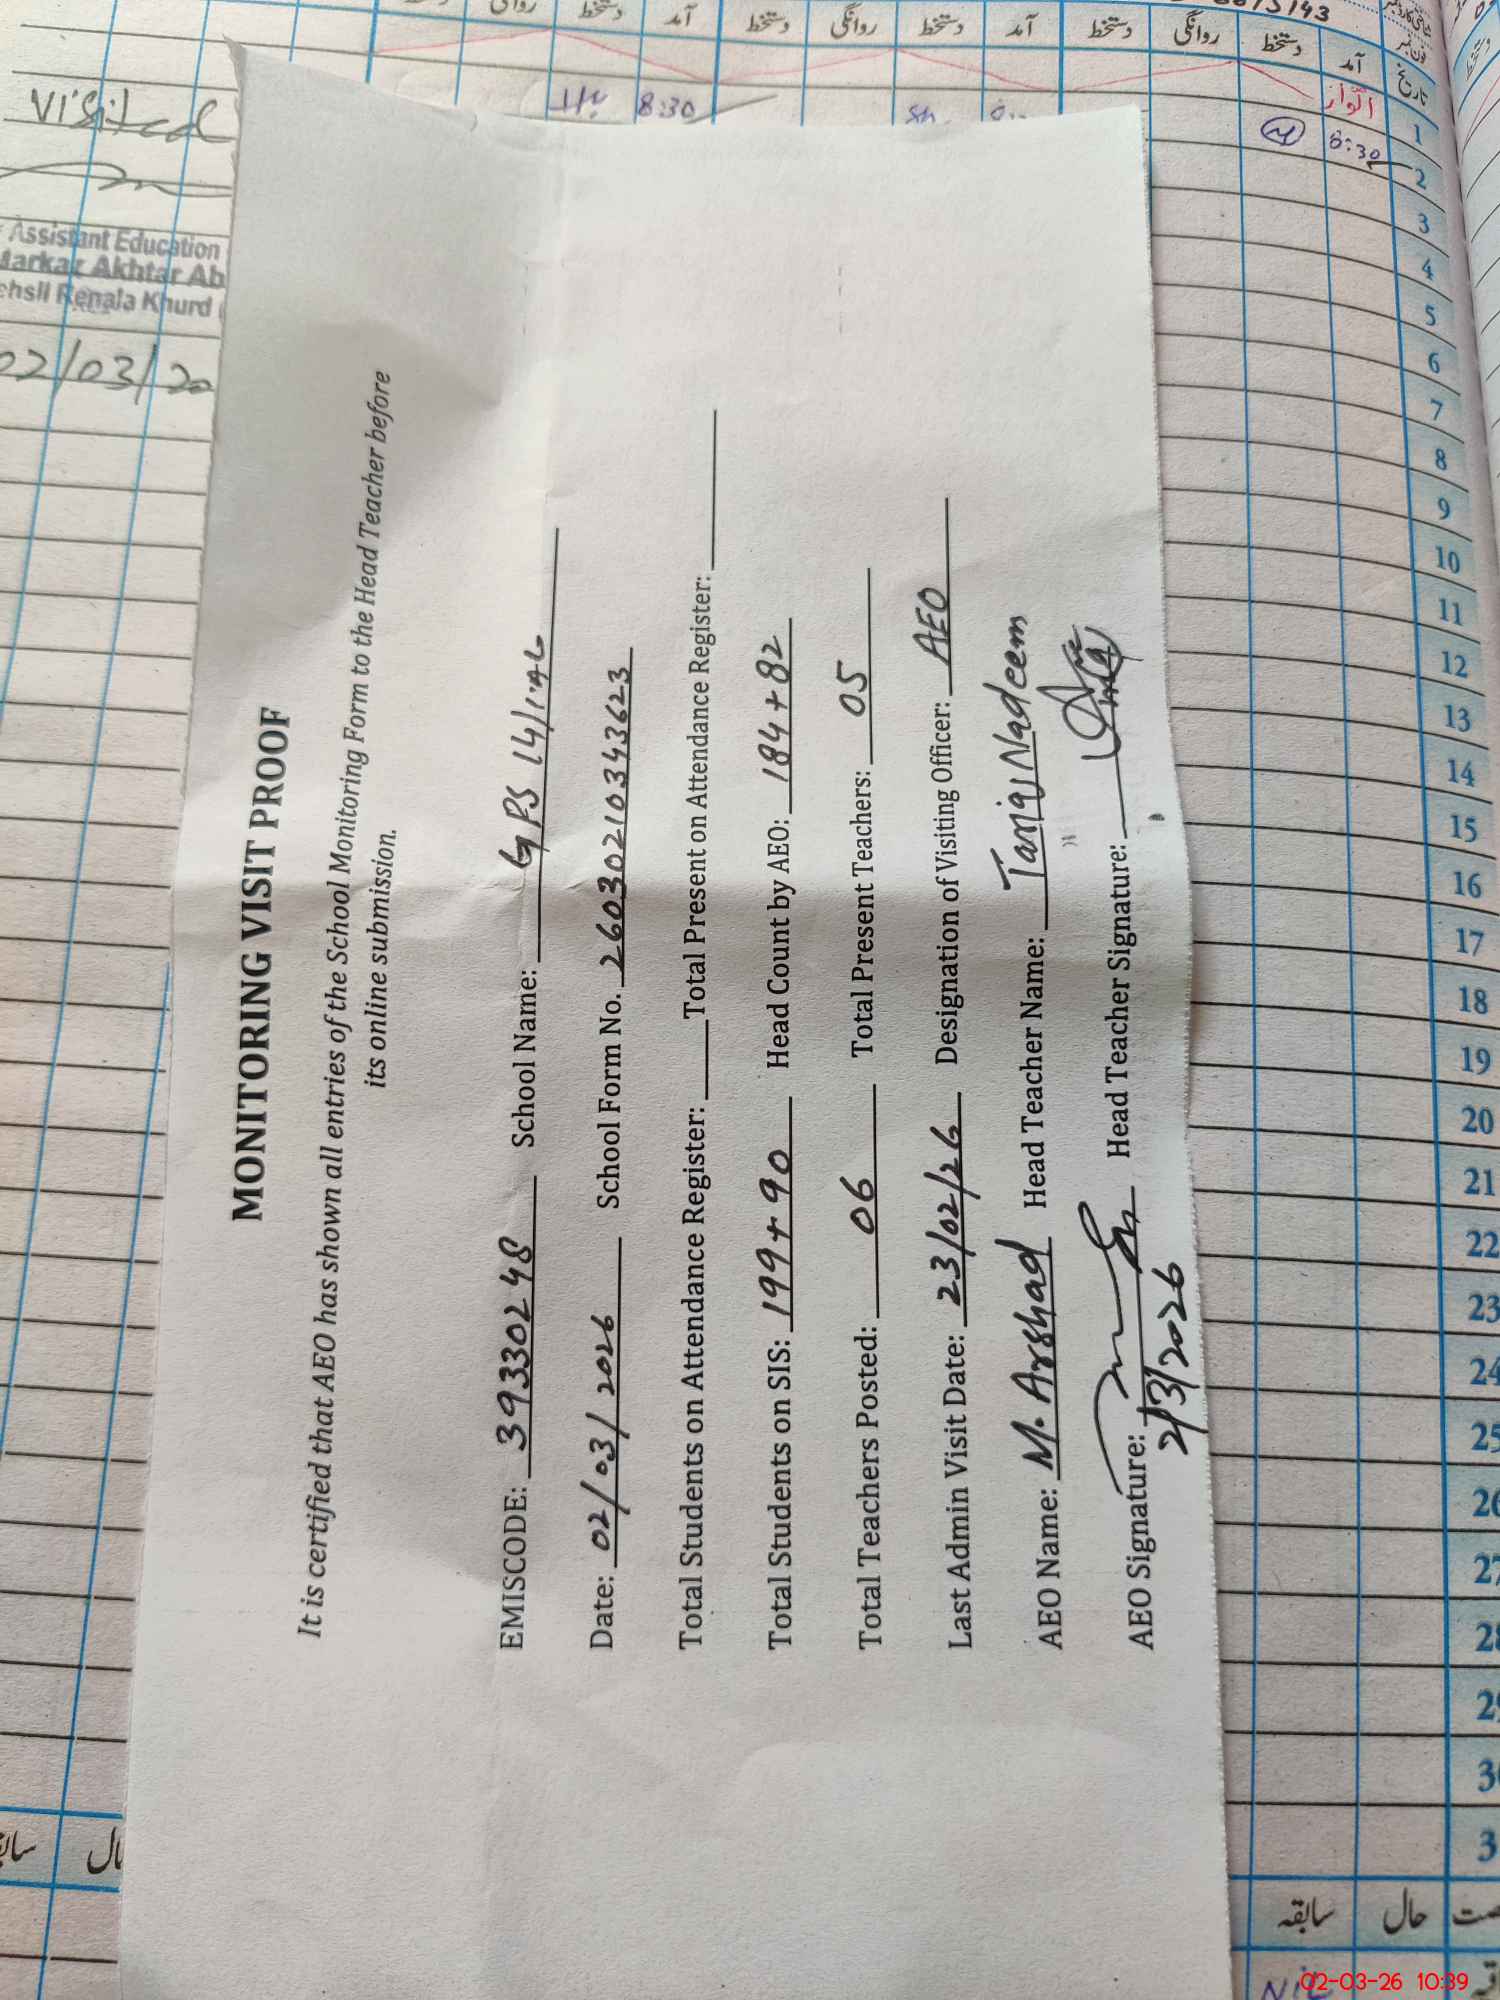 MONITORING VISIT PROOF
It is certified that AEO has shown all entries of the School Monitoring Form to the Head Teacher before
its online submission.
EMISCODE: 39330248 School Name: GPS 14/1.AL
Date: 02/03/2026 School Form No. 26030210343623
Total Students on Attendance Register: Total Present on Attendance Register:
Total Students on SIS: 199+90 Head Count by AEO: 184+82
Total Teachers Posted: 06 Total Present Teachers: 05
Last Admin Visit Date: 23/02/26 Designation of Visiting Officer: AEO
AEO Name: M. Arshad Head Teacher Name: Tariq Nadeem
AEO Signature: Head Teacher Signature:
2/3/2026
Visited
Assistant Education
Markaz Akhtar Ab
ehsil Renala Khurd
02/03/20
دستخط آمد دستخط روانگی دستخط آمد دستخط روانگی دستخط آمد تاریخ
8:30
اتوار 1
8:30 2
3
4
5
6
7
8
9
10
11
12
13
14
15
16
17
18
19
20
21
22
23
24
25
26
27
28
29
30
3
سابقہ حال
حال
Nil
02-03-26 10:39